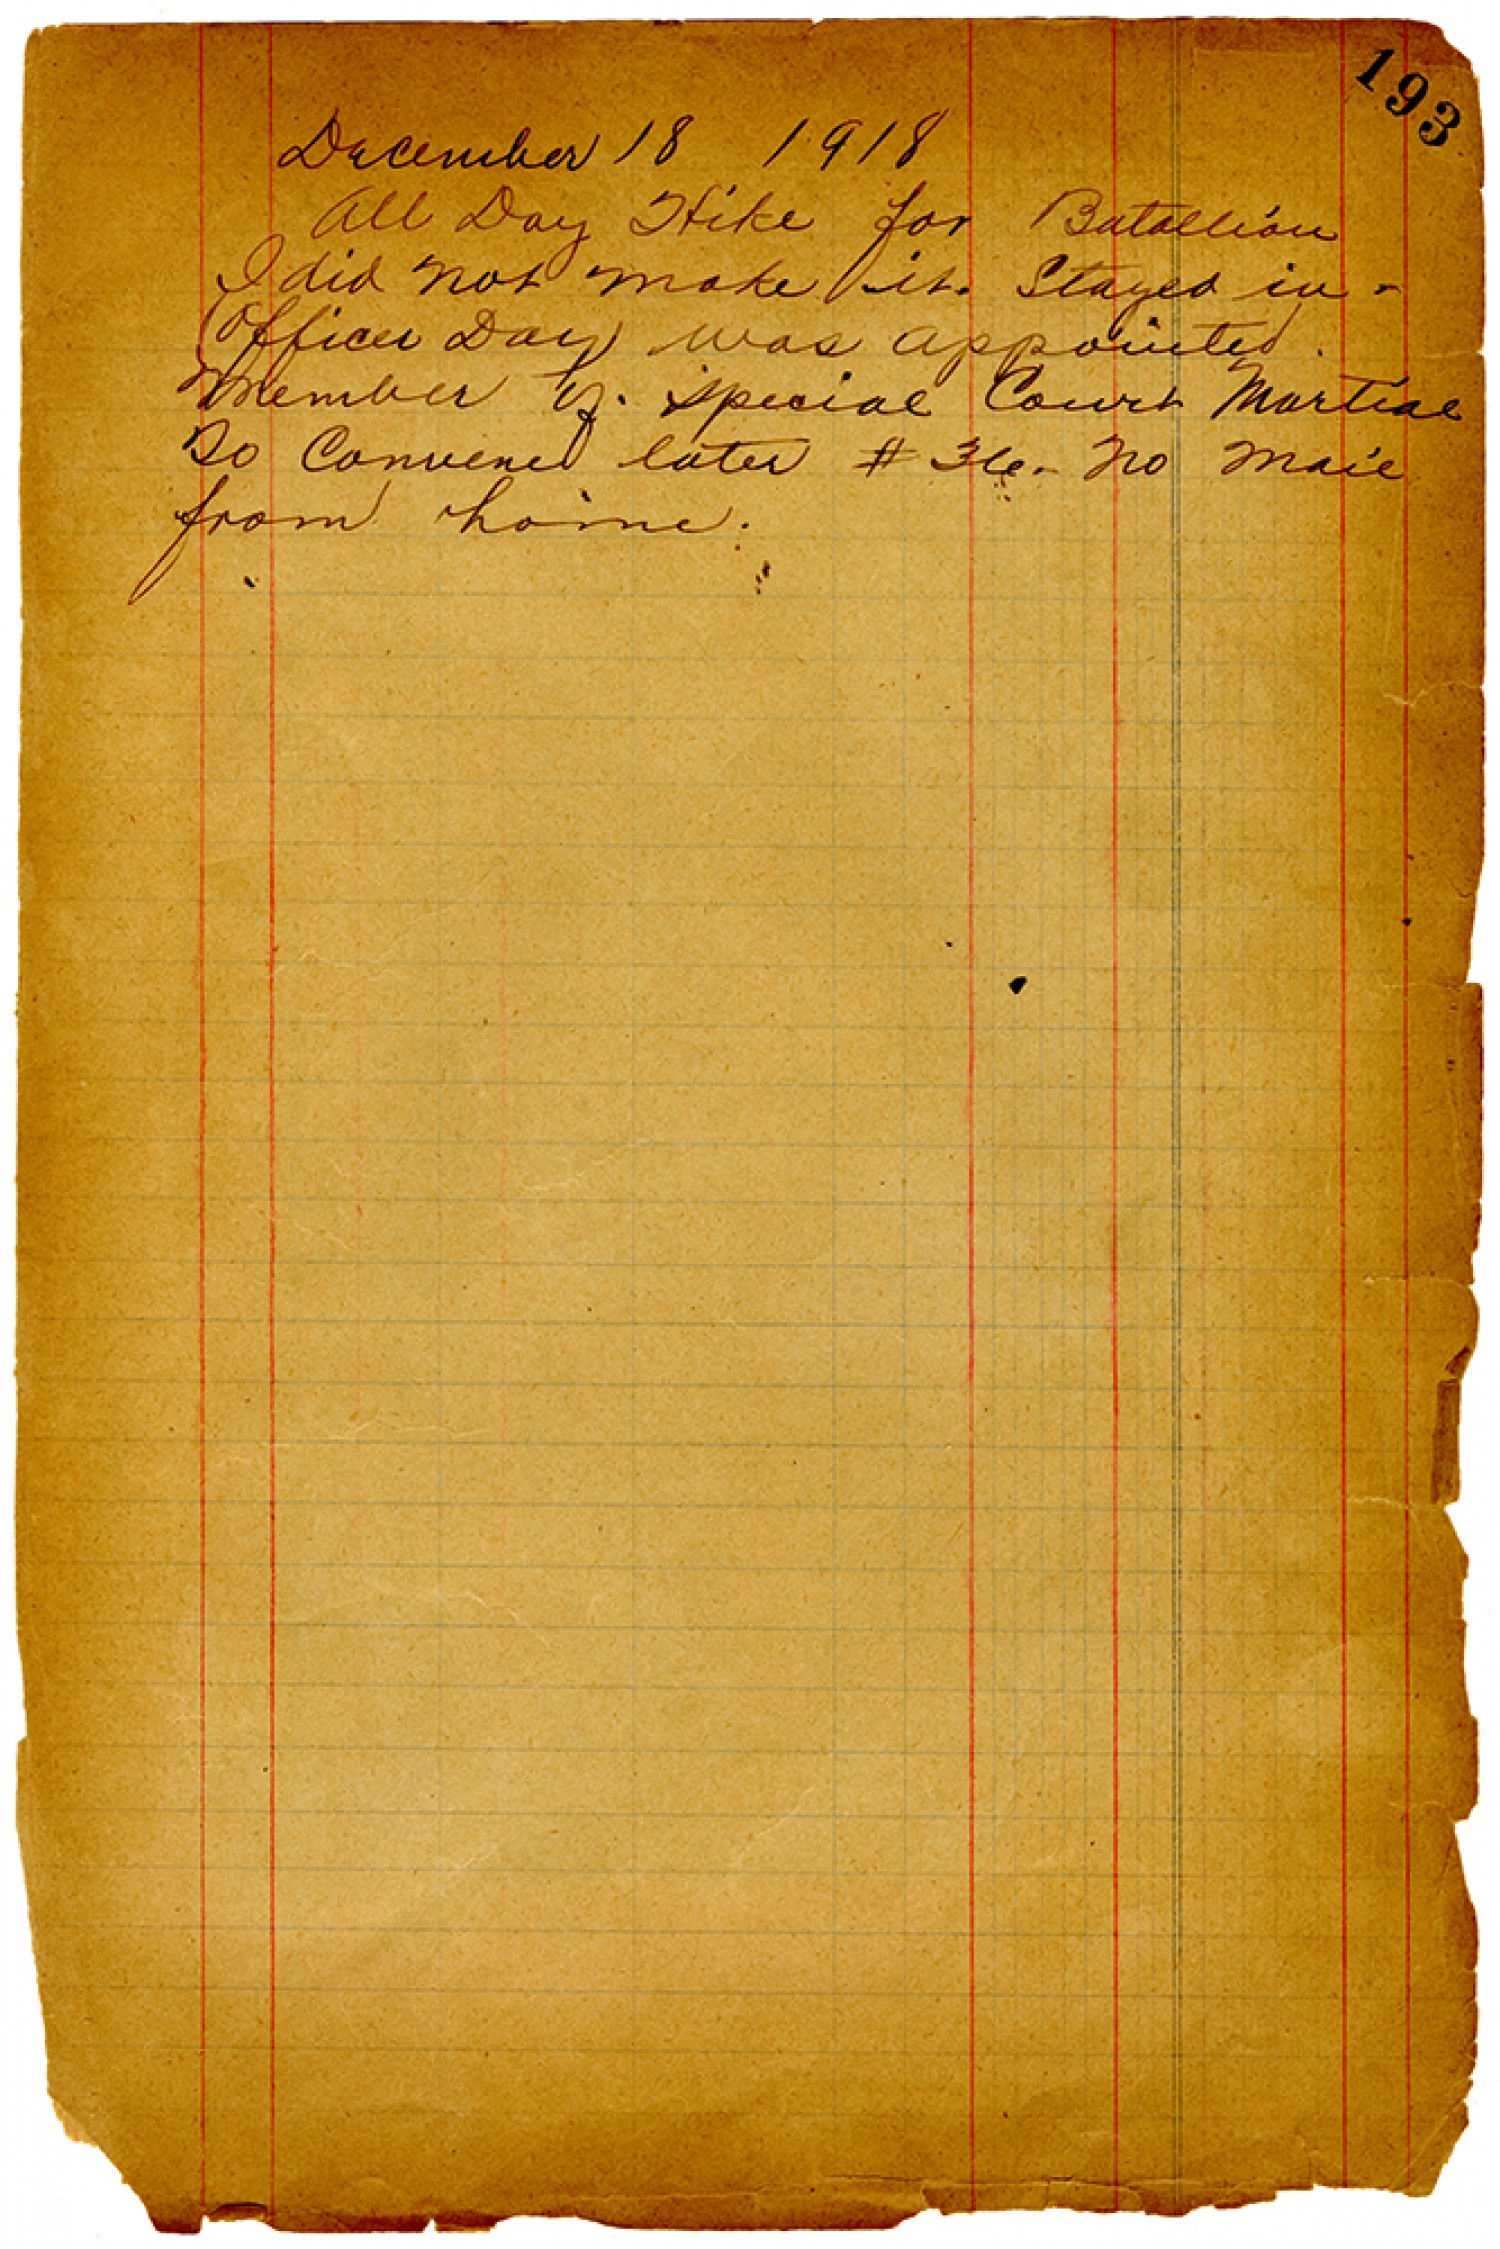 193
December 18 1918
All Day Hike for Batallion
I did not make it. Stayed in -
Officer Day was appointed
Member of. Special Court Martial
To Convened later # 36 - No Mail
from home.